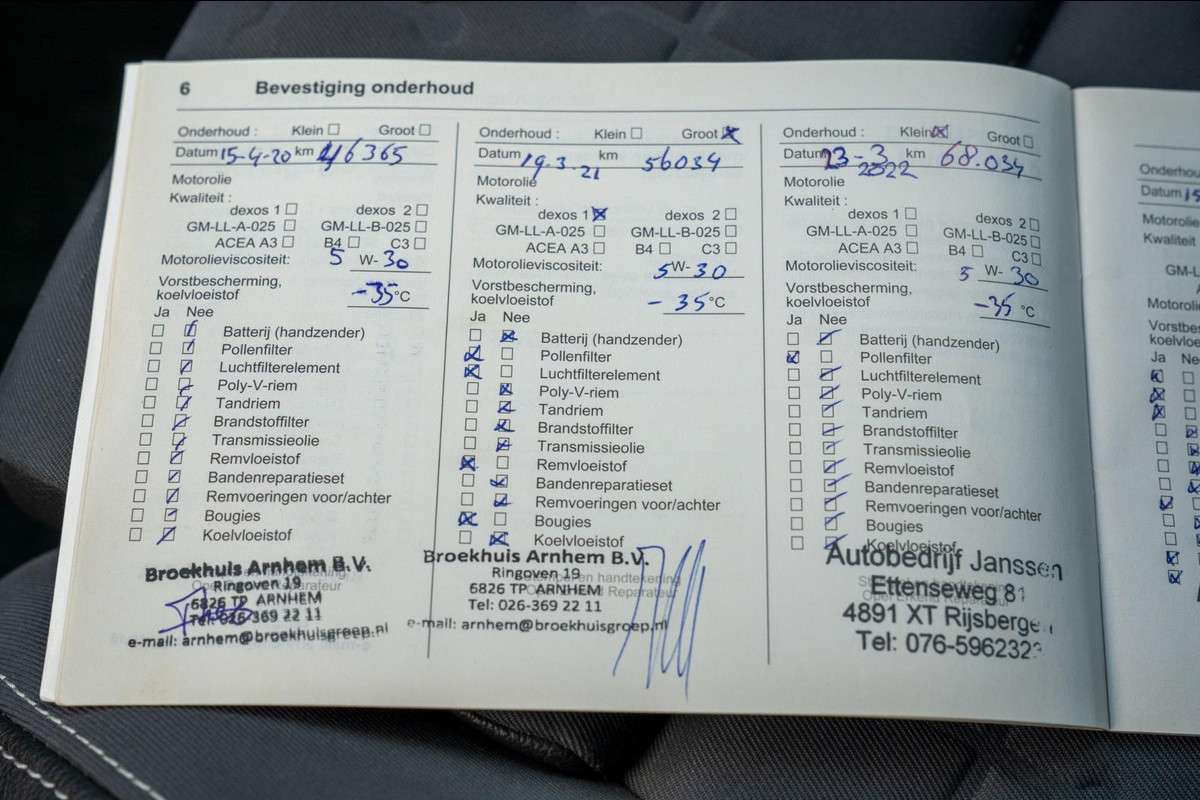 6 Bevestiging onderhoud
Onderhoud : Klein Groot
Datum 15-4-20 km 46365
Motorolie
Kwaliteit :
dexos 1 dexos 2
GM-LL-A-025 GM-LL-B-025
ACEA A3 B4 C3
Motorolieviscositeit: 5 W- 30
Vorstbescherming,
koelvloeistof -35 °C
Ja Nee
Batterij (handzender)
Pollenfilter
Luchtfilterelement
Poly-V-riem
Tandriem
Brandstoffilter
Transmissieolie
Remvloeistof
Bandenreparatieset
Remvoeringen voor/achter
Bougies
Koelvloeistof
Broekhuis Arnhem B.V.
Ringoven 19
6826 TP ARNHEM
Tel: 026-369 22 11
e-mail: arnhem@broekhuisgroep.nl
Onderhoud : Klein Groot
Datum 19.3.21 km 56034
Motorolie
Kwaliteit :
dexos 1 dexos 2
GM-LL-A-025 GM-LL-B-025
ACEA A3 B4 C3
Motorolieviscositeit: 5 W- 30
Vorstbescherming,
koelvloeistof - 35 °C
Ja Nee
Batterij (handzender)
Pollenfilter
Luchtfilterelement
Poly-V-riem
Tandriem
Brandstoffilter
Transmissieolie
Remvloeistof
Bandenreparatieset
Remvoeringen voor/achter
Bougies
Koelvloeistof
Broekhuis Arnhem B.V.
Ringoven 19
en handtekening
6826 TP ARNHEM
Tel: 026-369 22 11
e-mail: arnhem@broekhuisgroep.nl
Onderhoud : Klein Groot
Datum 23-3 2022 km 68.034
Motorolie
Kwaliteit :
dexos 1 dexos 2
GM-LL-A-025 GM-LL-B-025
ACEA A3 B4 C3
Motorolieviscositeit: 5 W- 30
Vorstbescherming,
koelvloeistof -35 °C
Ja Nee
Batterij (handzender)
Pollenfilter
Luchtfilterelement
Poly-V-riem
Tandriem
Brandstoffilter
Transmissieolie
Remvloeistof
Bandenreparatieset
Remvoeringen voor/achter
Bougies
Koelvloeistof
Autobedrijf Janssen
Ettenseweg 81
4891 XT Rijsberge
Tel: 076-596232
Onderhou
Datum 15
Motorolie
Kwaliteit
GM-L
Motorolie
Vorstbes
koelvloe
Ja Ne